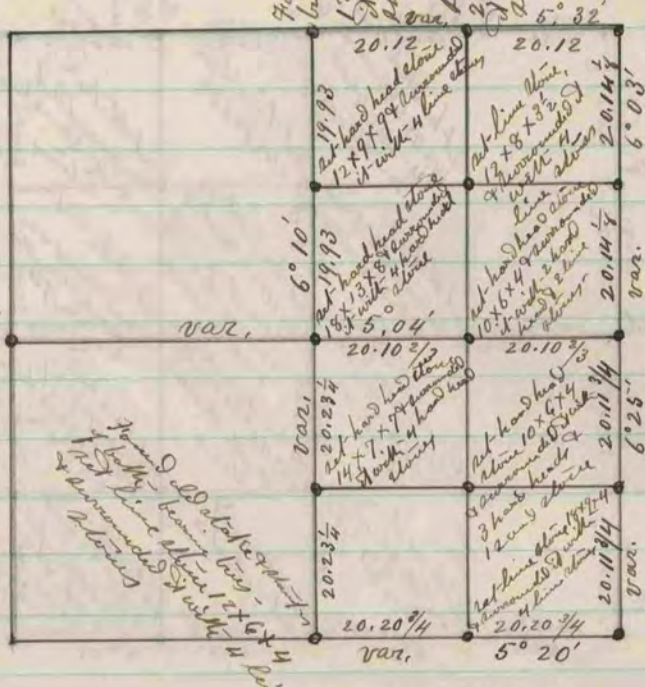 var.
5° 32'
20.12
20.12
19.93
set hard head stone
12 x 9 x 9 & surrounded
it with 4 lime stones
set lime stone,
12 x 8 x 3½
& surrounded it
with 4
lime stones
20.14⅛
6° 03'
6° 10'
19.93
set hard head stone
18 x 13 x 8 & surrounded
it with 4 hard head
stone
set hard head stone
10 x 6 x 4 & surrounded
it with 2 hard
heads & 2 lime
stones
20.14⅛
var.
var.
5° 04'
20.10 2/
20.10 2/3
var.
20.23¼
set hard head stone
14 x 7 x 7 & surrounded
it with 4 hard head
stones
set hard head
stone 10 x 6 x 4
& surrounded it with
3 hard heads &
1 stone
20.11¾
6° 25'
Found old stake & stumps
of both bearing trees -
set lime stone 12 x 6 x 4
& surrounded it with 4
stones
20.23¼
set lime stone
& surrounded it with
4 lime stones
20.11¾
var.
20.20¾
20.20¾
var.
5° 20'